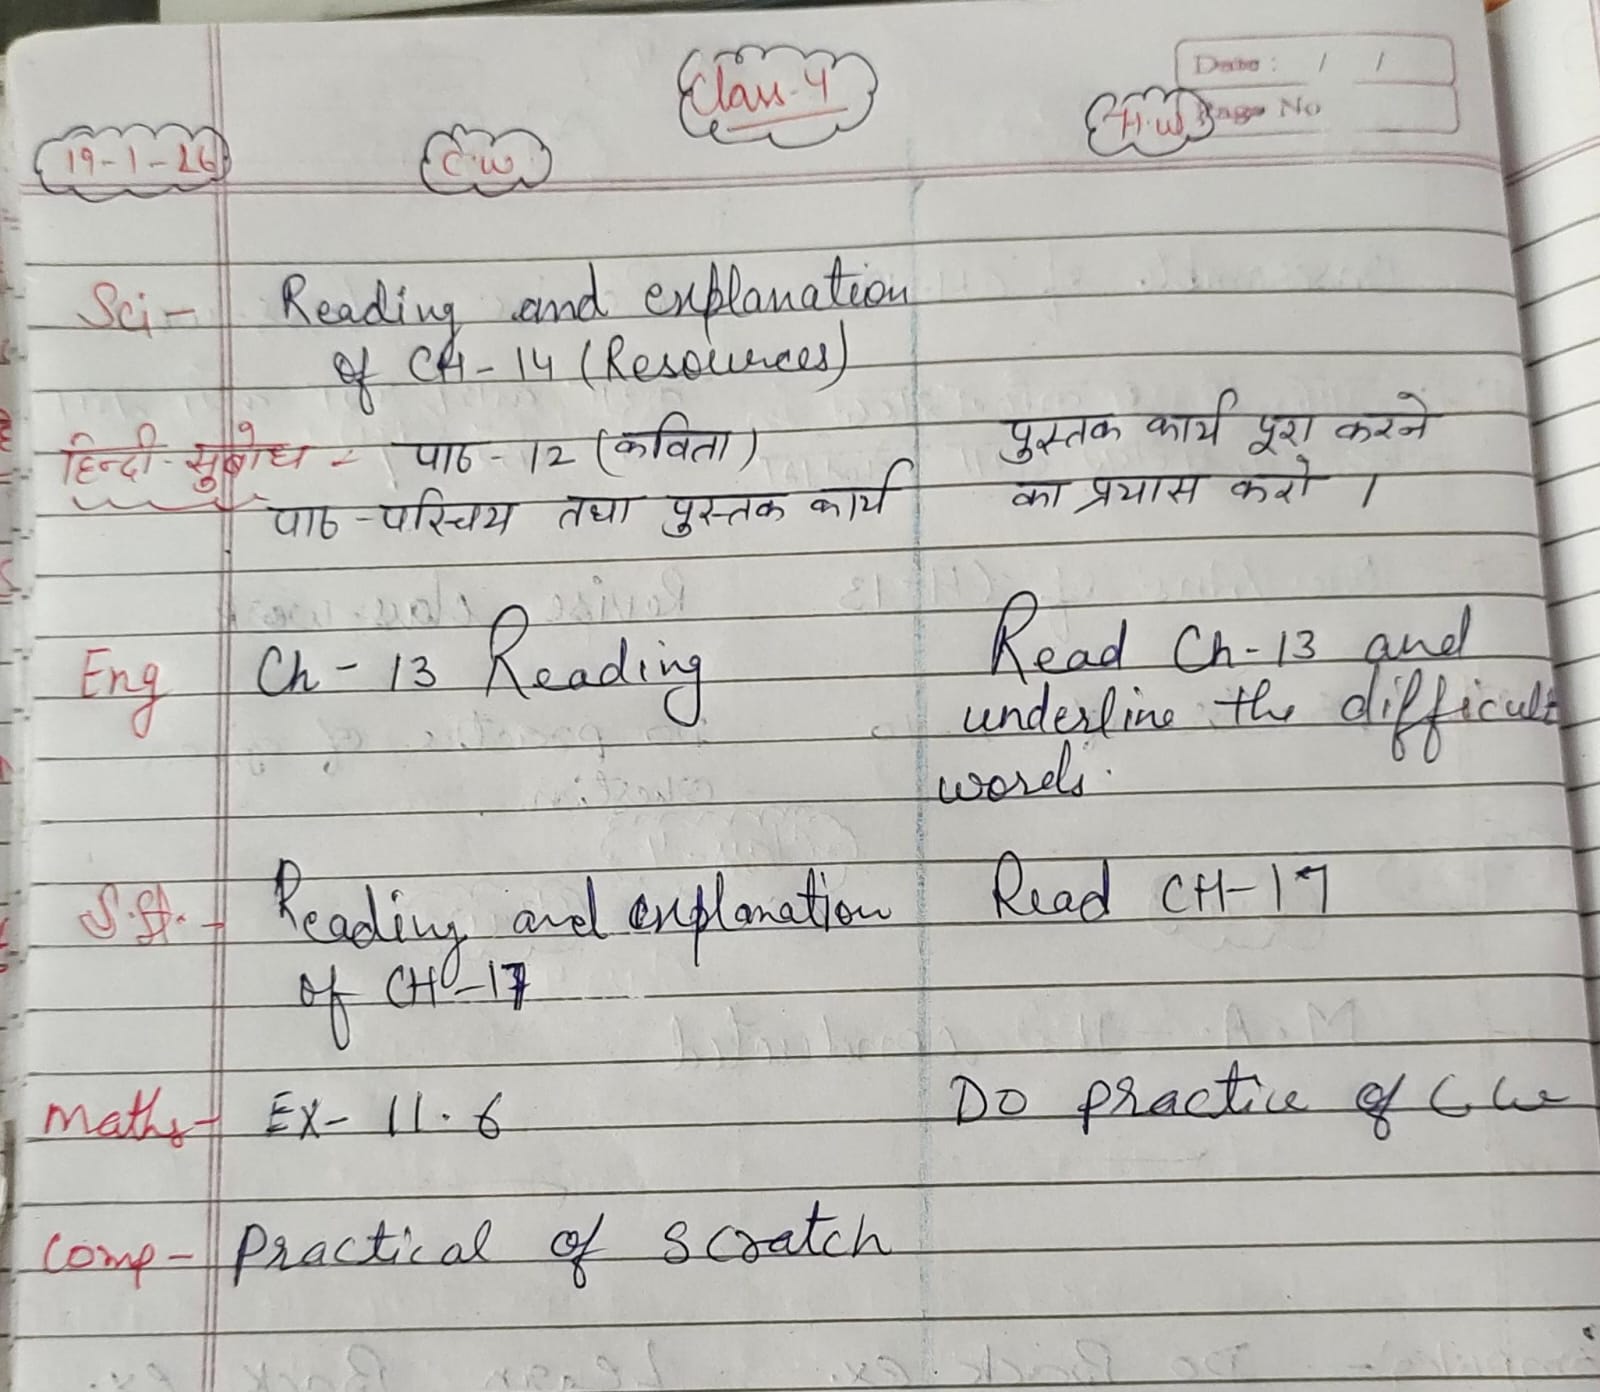 Class-4
Date: / /
Page No
19-1-26 C.W H.W
Sci- Reading and explanation
of CH-14 (Resources)
हिन्दी-सुबोध - पाठ-12 (कविता) पुस्तक कार्य पूरा करने
पाठ-परिचय तथा पुस्तक कार्य का प्रयास करो ।
Eng Ch-13 Reading Read Ch-13 and
underline the difficult
words.
S.St.- Reading and explanation Read CH-17
of CH-17
Maths- EX-11.6 Do practice of C.W
Comp- Practical of scratch